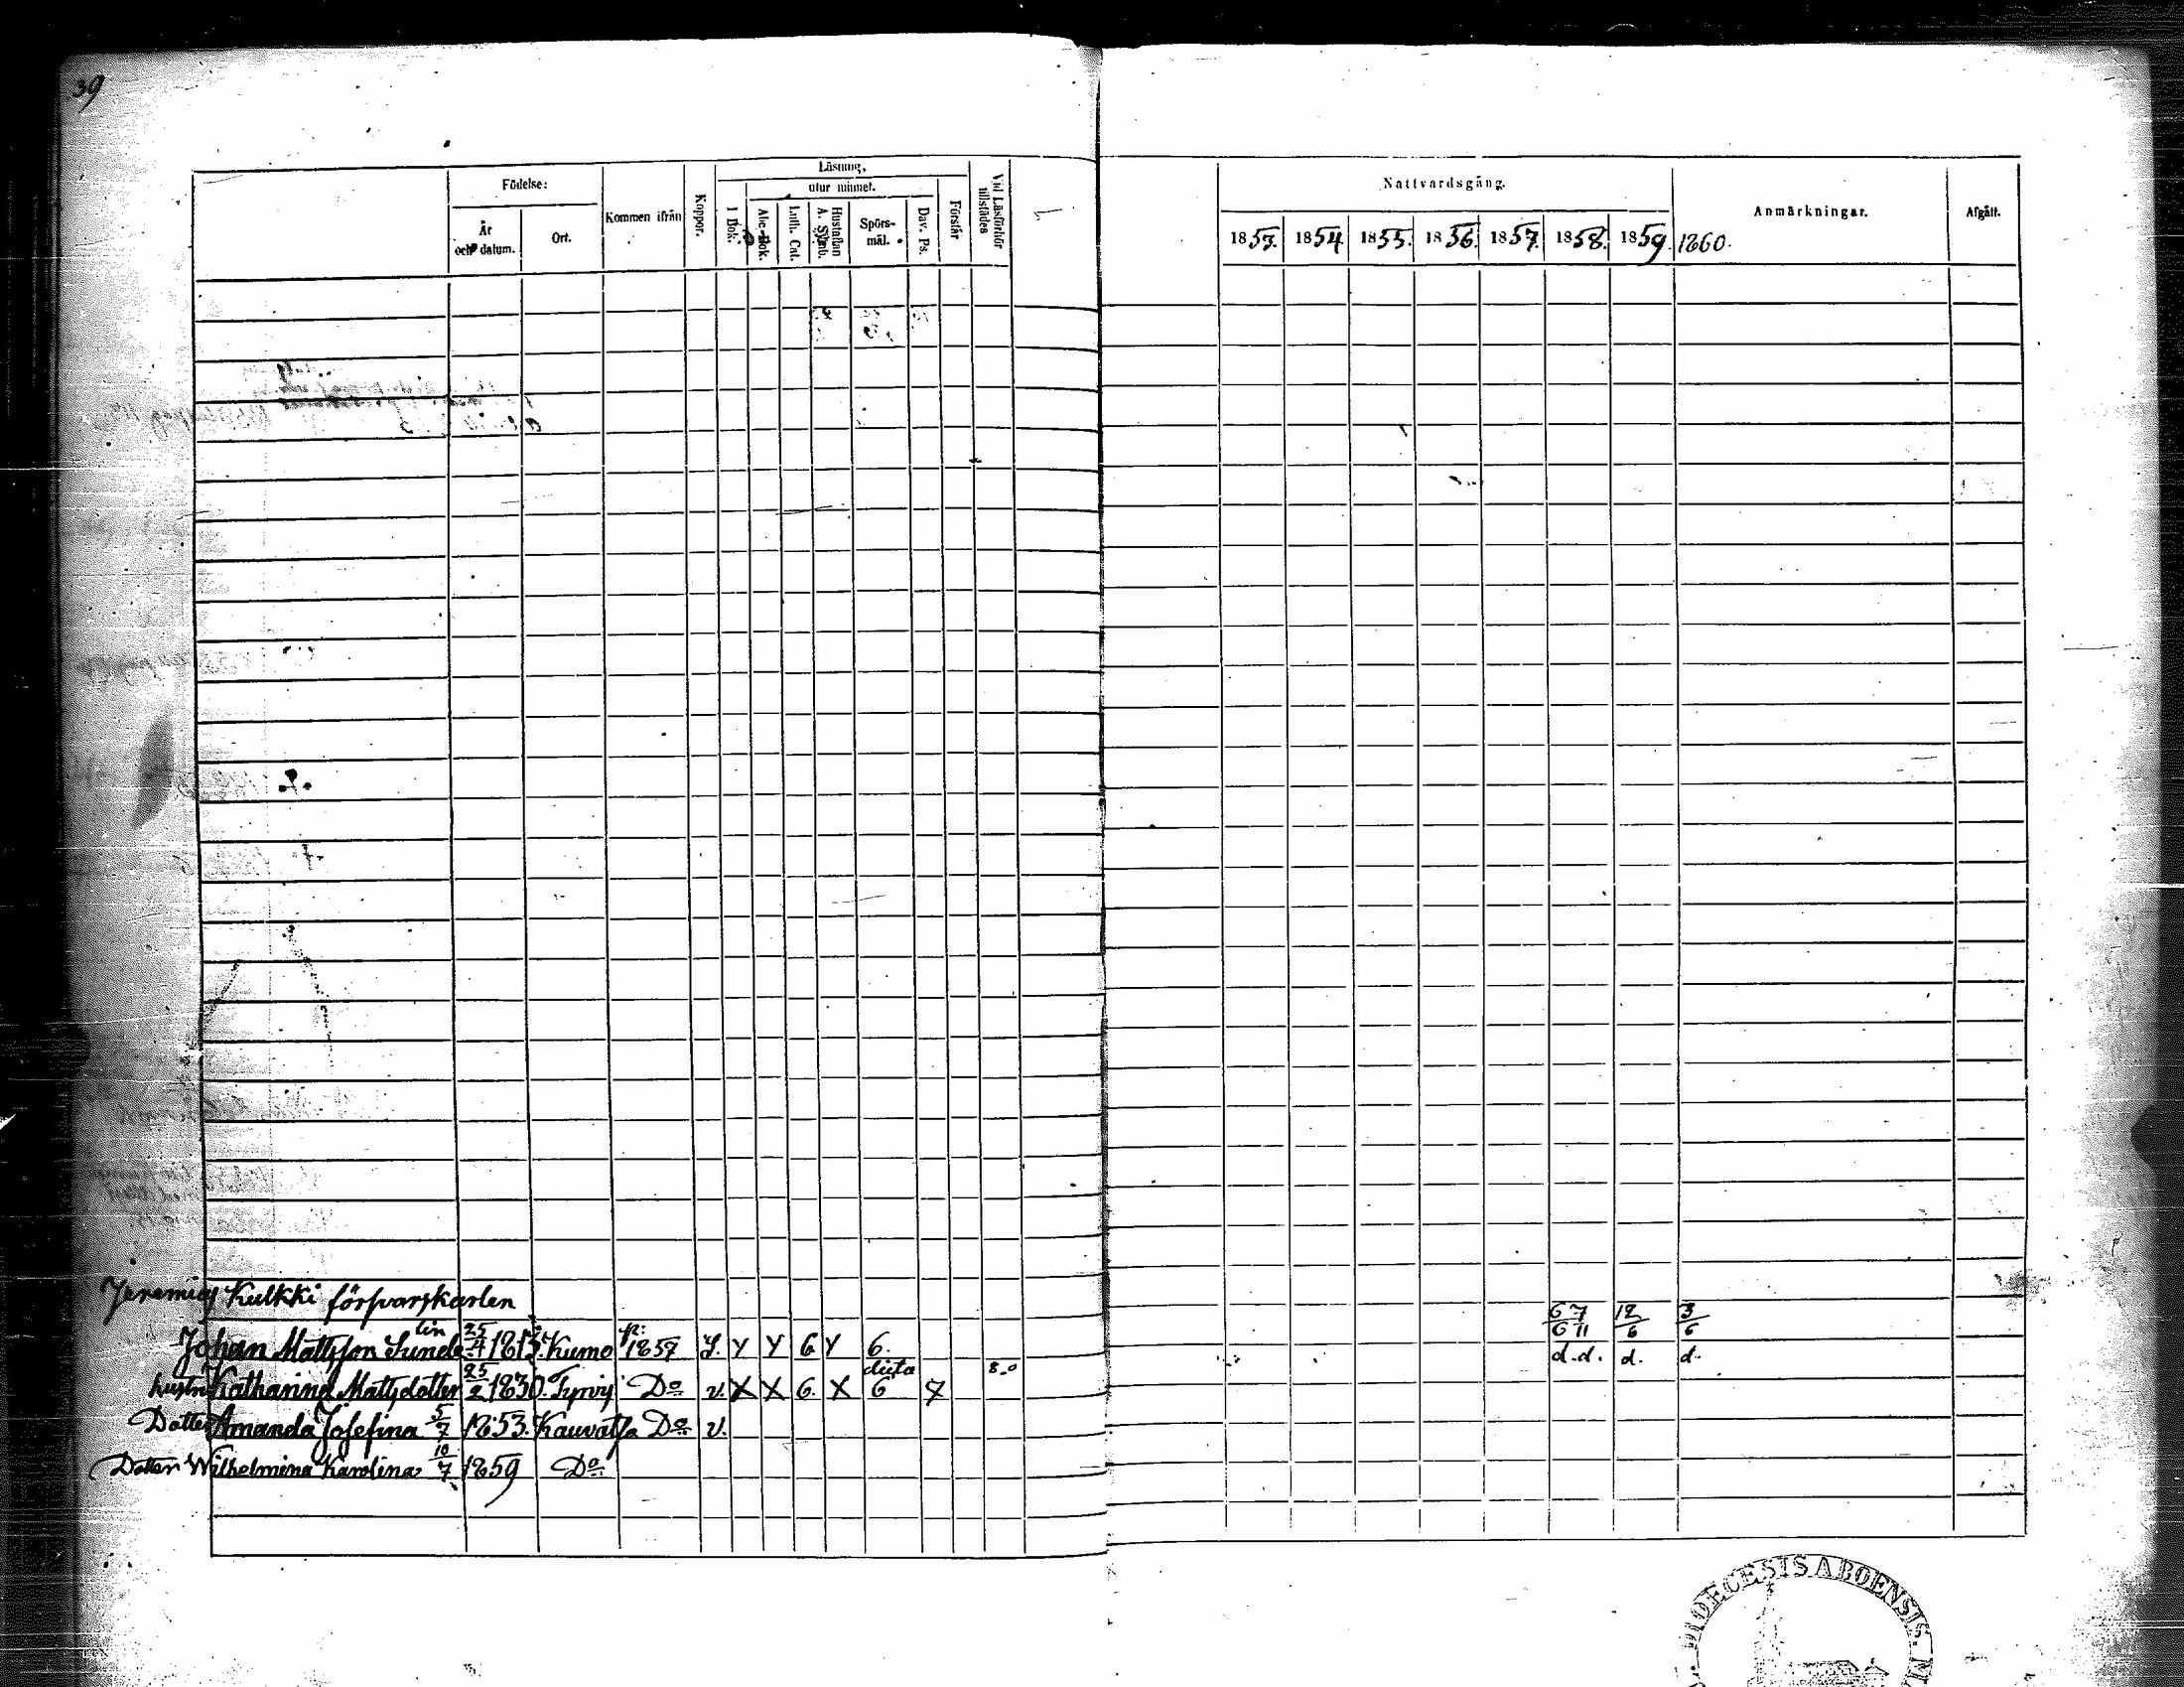 39
Födelse:
År och datum.
Ort.
Kommen ifrån
Koppor.
Läsning.
I Bok.
utur minnet.
Abc-Bok.
Luth. Cat.
Hustaflan A. Symb.
Spörs-mål.
Dav. Ps.
Förstår
Vid Läsförhör tillstädes
Nattvardsgång.
1853. 1854. 1855. 1856. 1857. 1858. 1859. 1860.
Anmärkningar.
Afgått.
Jeremias Kulkki försvarskarlen
6/6 7/11 12/6 3/6
Johan Mattsson Sundelin 25/11 1813. Kumo 1857 Y Y 6 Y 6. d. d. d. d.
hustru Katharina Mattsdotter 25/2 1830. Tyrvis Do v. X X 6. X dicta 6 7 8.0
Dotter Amanda Josefina 5/7 1853. Kauvatsa Do v.
Dotter Wilhelmina Karolina 10/7 1859 Do
DIOECESIS ABOENSIS.